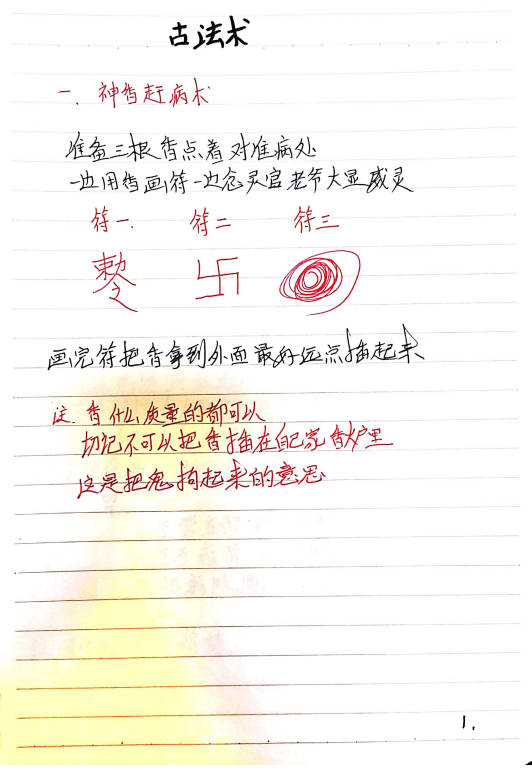 古法术
一、神香赶病术
准备三根香点着对准病处
一边用香画符一边念灵官老爷大显威灵
符一、 符二 符三
敕令 卐
画完符把香拿到外面最好远点插起来
注、香什么质量的都可以
切记不可以把香插在自己家香炉里
这是把鬼拘起来的意思
1.